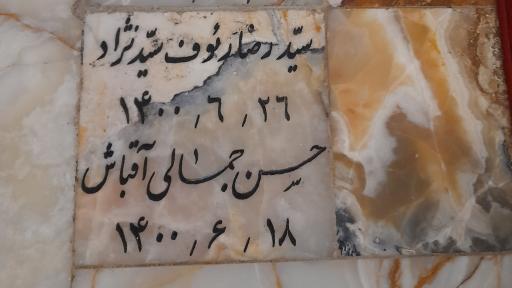 سیّد رضا رئوف سیّد نژاد
۱۴۰۰ ٫ ٦ ٫ ۲٦
حسن جمالی آقباش
۱۴۰۰ ٫ ۶ ٫ ۱۸